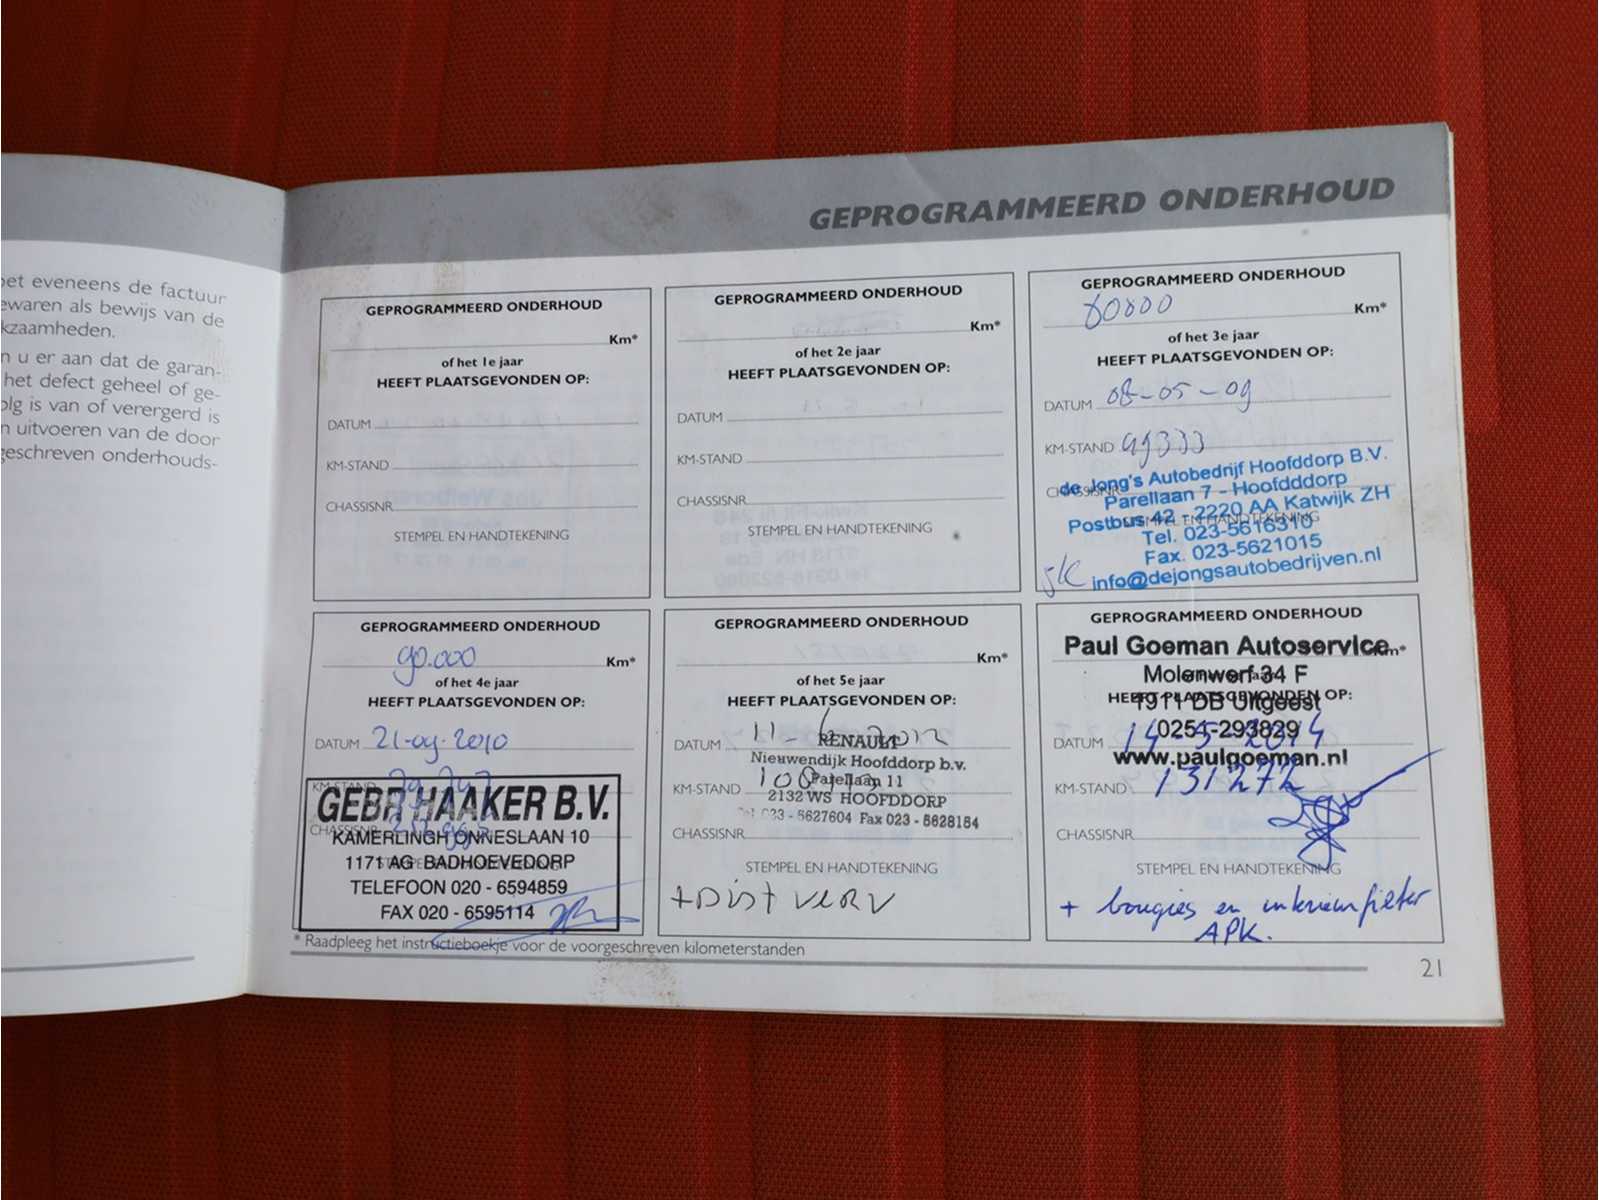 GEPROGRAMMEERD ONDERHOUD
eveneens de factuur
als bewijs van de
u er aan dat de garan-
het defect geheel of ge-
is van of verergerd is
uitvoeren van de door
onderhouds-
GEPROGRAMMEERD ONDERHOUD
Km*
of het 1e jaar
HEEFT PLAATSGEVONDEN OP:
DATUM
KM-STAND
CHASSISNR.
STEMPEL EN HANDTEKENING
GEPROGRAMMEERD ONDERHOUD
Km*
of het 2e jaar
HEEFT PLAATSGEVONDEN OP:
DATUM
KM-STAND
CHASSISNR.
STEMPEL EN HANDTEKENING
GEPROGRAMMEERD ONDERHOUD
Km*
of het 3e jaar
HEEFT PLAATSGEVONDEN OP:
DATUM 08-05-09
KM-STAND
de Jong's Autobedrijf Hoofddorp B.V.
CHASSISNR.
Parellaan 7 - Hoofdddorp
Postbus 42 - 2220 AA Katwijk ZH
STEMPEL EN HANDTEKENING
Tel. 023-5616310
Fax. 023-5621015
info@dejongsautobedrijven.nl
GEPROGRAMMEERD ONDERHOUD
90.000 Km*
of het 4e jaar
HEEFT PLAATSGEVONDEN OP:
DATUM 21-09-2010
KM-STAND
GEBR HAAKER B.V.
CHASSISNR.
KAMERLINGH ONNESLAAN 10
1171 AG BADHOEVEDORP
TELEFOON 020 - 6594859
FAX 020 - 6595114
GEPROGRAMMEERD ONDERHOUD
Km*
of het 5e jaar
HEEFT PLAATSGEVONDEN OP:
DATUM
RENAULT
Nieuwendijk Hoofddorp b.v.
KM-STAND
Parellaan 11
2132 WS HOOFDDORP
023 - 5627604 Fax 023 - 5628154
CHASSISNR.
STEMPEL EN HANDTEKENING
+ Dist verv
GEPROGRAMMEERD ONDERHOUD
Paul Goeman Autoservice
Km*
Molenwerf 34 F
HEEFT PLAATSGEVONDEN OP:
1911 DB Uitgeest
0251-293829
DATUM 14-5-2014
www.paulgoeman.nl
KM-STAND 131272
CHASSISNR.
STEMPEL EN HANDTEKENING
+ bougies en interieurfilter
APK.
* Raadpleeg het instructieboekje voor de voorgeschreven kilometerstanden
21